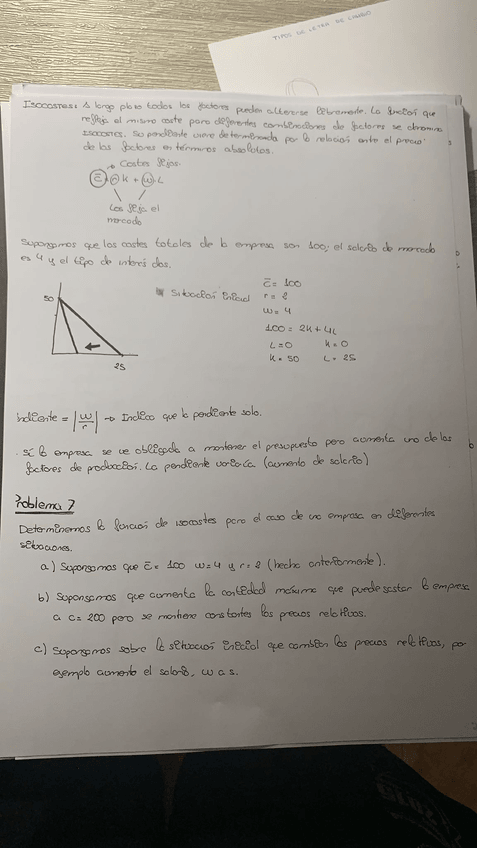 TIPOS DE LETRA DE CAMBIO
Isocostes: A largo plazo todos los factores pueden alterarse libremente. La función que
refleja el mismo coste para diferentes combinaciones de factores se denomina
isocostes. Su pendiente viene determinada por la relación entre el precio
de los factores en términos absolutos.
→ Costes fijos.
c̄ = r K + w L
Los fija el
mercado
Supongamos que los costes totales de la empresa son 100; el salario de mercado
es 4 y el tipo de interés dos.
Situación inicial
c̄ = 100
r = 2
w = 4
100 = 2K + 4L
L = 0 K = 0
K = 50 L = 25
50
25
indiente = |w/r| → Indica que la pendiente solo.
. Si la empresa se ve obligada a mantener el presupuesto pero aumenta uno de los
factores de producción. La pendiente variaría (aumento de salario)
Problema 7
Determinemos la función de isocostes para el caso de una empresa en diferentes
situaciones.
a) Supongamos que c̄ = 100 w = 4 y r = 2 (hecho anteriormente).
b) Supongamos que aumenta la cantidad máxima que puede gastar la empresa
a c = 200 pero se mantiene constantes los precios relativos.
c) Supongamos sobre la situación inicial que cambian los precios relativos, por
ejemplo aumenta el salario, w a 5.